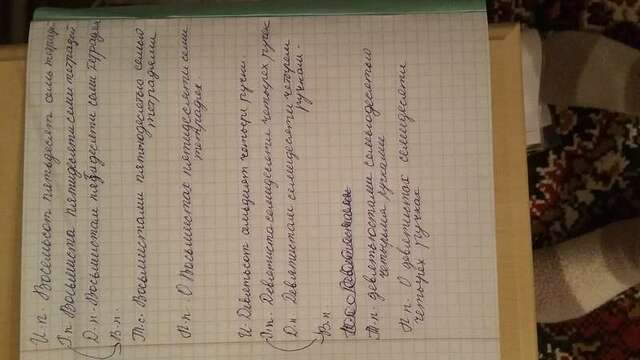 И.п. Восемьсот пятьдесят семь тетрадей
Р.п. Восьмиста пятидесяти семи тетрадей
Д.п. Восьмистам пятидесяти семи тетрадям
В.п.
Т.п. Восьмистами пятьюдесятью семью
тетрадями
П.п. О Восьмистах пятидесяти семи
тетрадях.
И Девятьсот семьдесят четыре ручки.
Р.п. Девятиста семидесяти четырех ручек
Д.п. Девятистам семидесяти четырем
ручкам.
В.п.
Т.п. девятьюстами семьюдесятью
четырьмя ручками
П.п. О девятистах семидесяти
четырех ручках